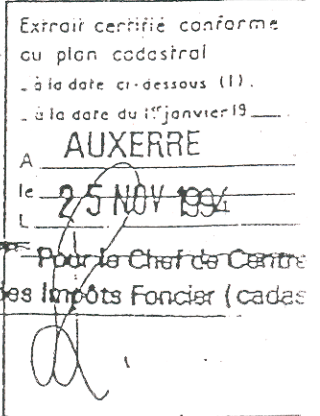 Extrait certifié conforme
au plan cadastral
- à la date ci-dessous (1).
- à la date du 1er janvier 19
A AUXERRE
le 25 NOV 1994
L
Pour le Chef de Centre
des Impôts Foncier (cadas